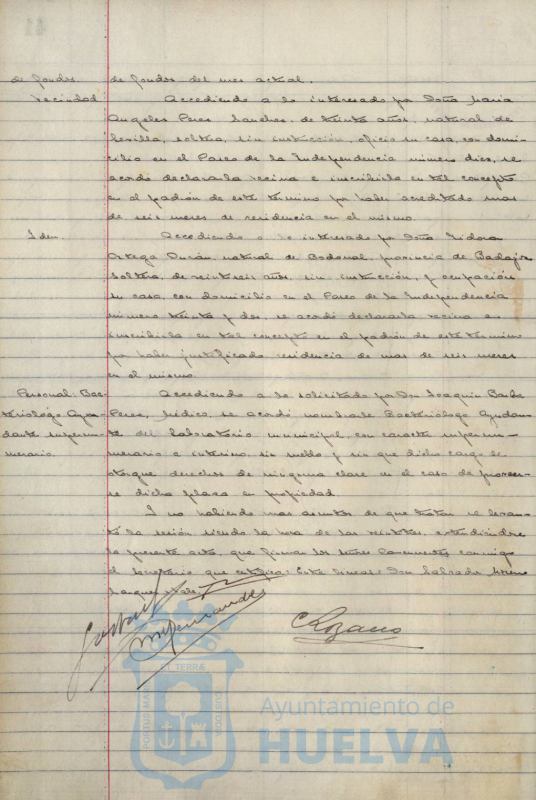 de fondos. de fondos del mes actual.
Vecindad Accediendo a lo interesado por Doña Maria
Angeles Perez Sanchez, de treinta años, natural de
Sevilla, soltera, sin instrucción, oficio su casa, con domi-
cilio en el Paseo de la Independencia número diez, se
acordo declararla vecina e inscribirla en tal concepto
en el padrón de este término por haber acreditado mas
de seis meses de residencia en el mismo.
Idem. Accediendo a lo interesado por Doña Isidora
Ortega Durán, natural de Bodonal, provincia de Badajoz
soltera, de veintiseis años, sin instrucción, y ocupación
su casa, con domicilio en el Paseo de la Independencia
número treinta y dos, se acordó declararla vecina e
inscribirla en tal concepto en el padrón de este término
por haber justificado residencia de mas de seis meses
en el mismo.
Personal: Bac- Accediendo a lo solicitado por Don Joaquin Barba
teriológo Ayu- Perez, Médico, se acordó nombrarle Bacteriólogo Ayudan-
dante supernu- te del laboratorio municipal, con caracter supernu-
merario. merario e interino, sin sueldo y sin que dicho cargo le
otorgue derechos de ninguna clase en el caso de proveer-
se dicha plaza en propiedad.
Y no habiendo mas asuntos de que tratar se levan-
tó la sesión siendo la hora de las veintitres, extendiendose
la presente acta, que firman los señores concurrentes conmigo
el Secretario que certifico: Entre lineas: Don Salvador Moreno
Marquez = Vale.
MFernandez
CLozano
PORTUS MARIS ET TERRÆ CUSTODIA
Ayuntamiento de
HUELVA